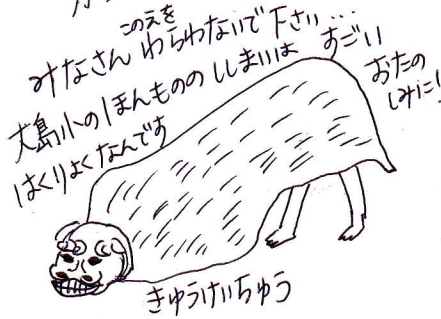 このえを
みなさん わらわないで下さい…
大島小のほんもののししまいは すごい
はくりょくなんです
おたの
しみに!
きゅうけいちゅう